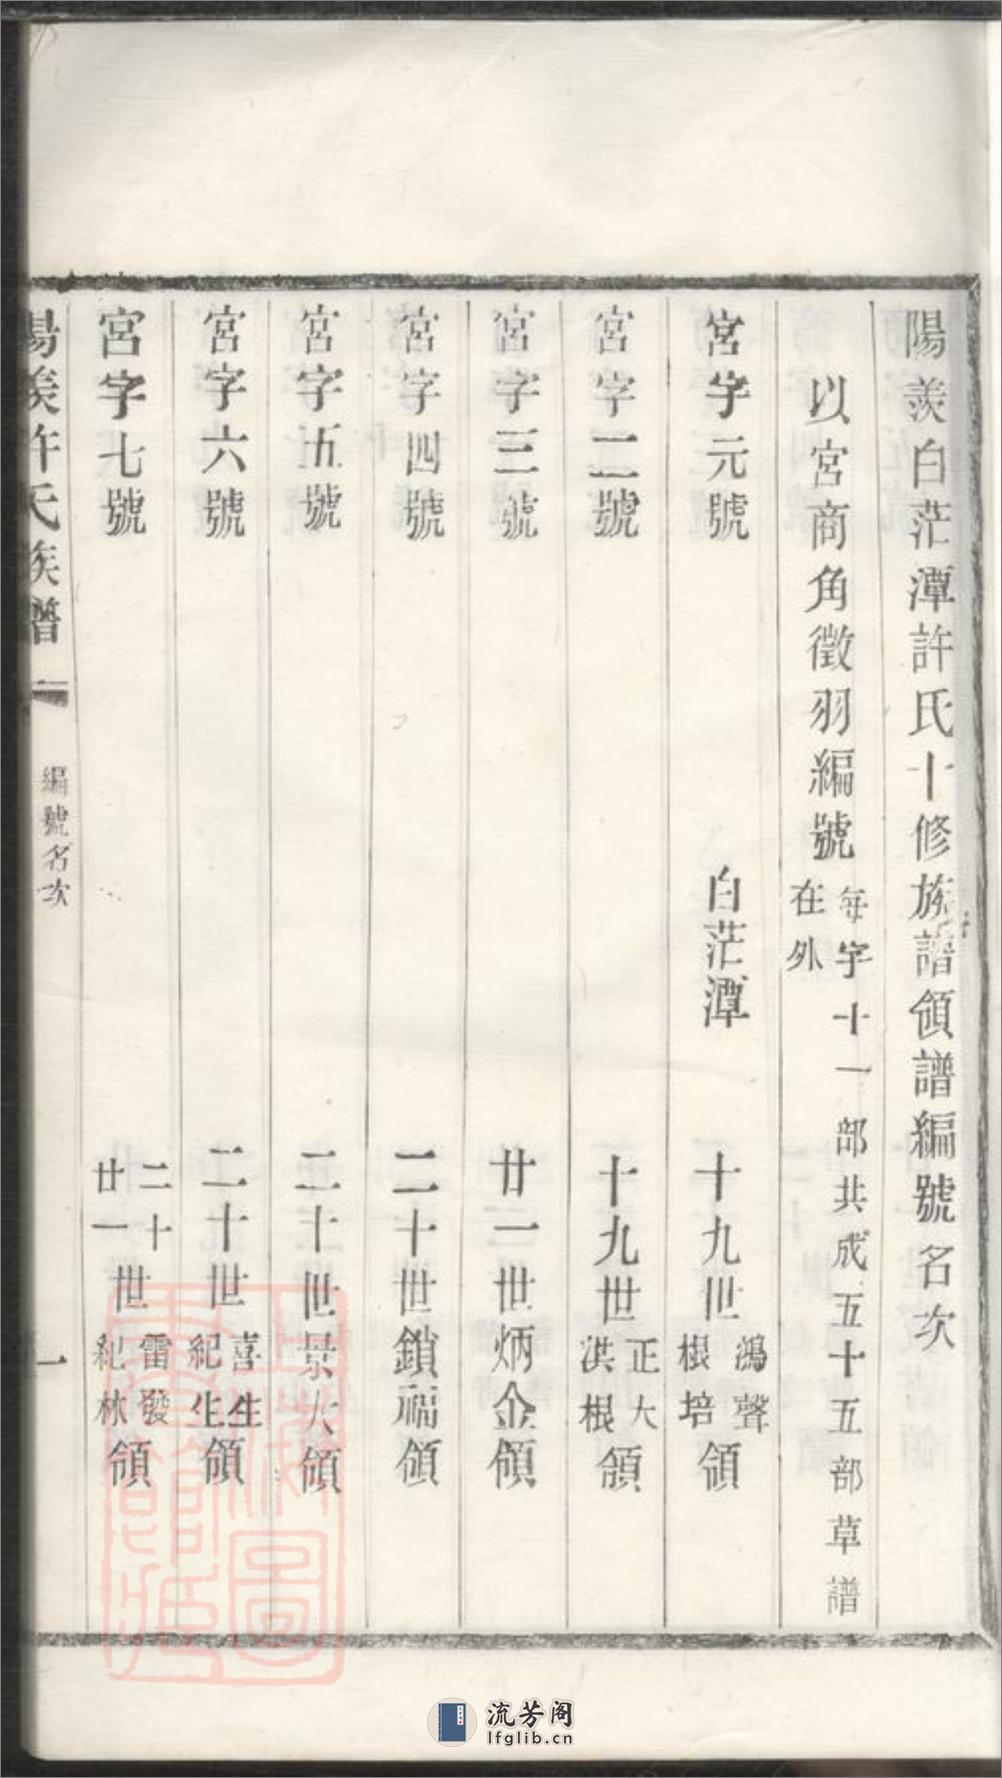 陽羨白茫潭許氏十修族譜領譜編號名次
以宮商角徵羽編號 每字十一部共成五十五部草譜
在外
宮字元號 白茫潭 十九世 鴻聲 根培 領
宮字二號 十九世 正大 洪根 領
宮字三號 廿一世 炳金 領
宮字四號 二十世 鎖福 領
宮字五號 二十世 景大 領
宮字六號 二十世 喜生 紀生 領
宮字七號 二十 廿一 世 雷發 紀林 領
陽羨許氏族譜 編號名次 一
上海圖書館藏
流芳阁
lfglib.cn